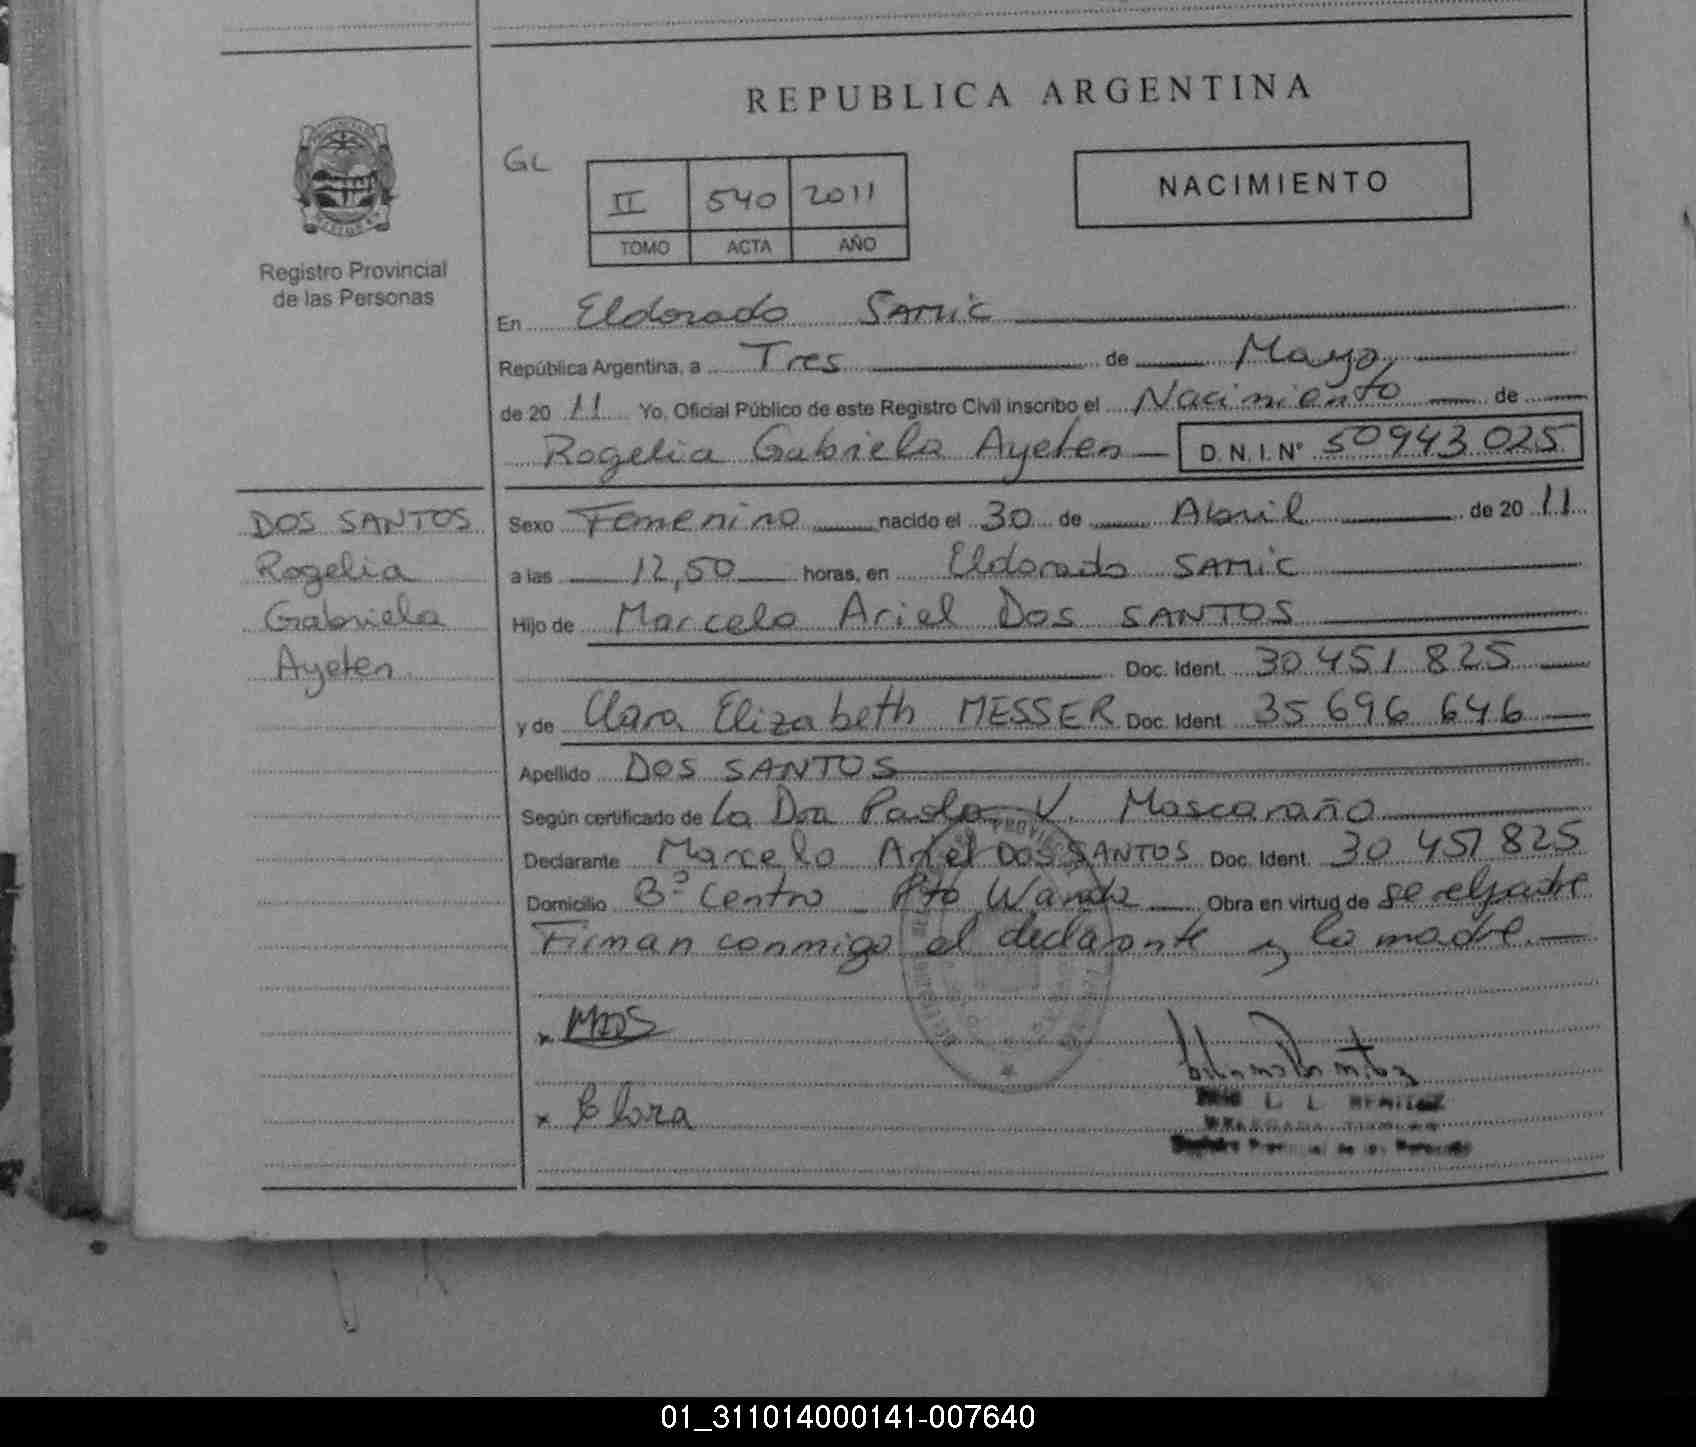 REPUBLICA ARGENTINA
GL
II 540 2011
TOMO ACTA AÑO
NACIMIENTO
Registro Provincial
de las Personas
En Eldorado SAMIC
República Argentina, a Tres de Mayo
de 20 11 Yo, Oficial Público de este Registro Civil inscribo el Nacimiento de
Rogelia Gabriela Ayelen D.N.I. Nº 50943025
DOS SANTOS
Rogelia
Gabriela
Ayelen
Sexo Femenino nacido el 30 de Abril de 20 11
a las 12,50 horas, en Eldorado SAMIC
Hijo de Marcelo Ariel Dos SANTOS
Doc. Ident. 30 451 825
y de Clara Elizabeth MESSER Doc. Ident. 35 696 646
Apellido DOS SANTOS
Según certificado de La Dra Paola V. Mascaraño
Declarante Marcelo Ariel DOS SANTOS Doc. Ident. 30 451 825
Domicilio Bº Centro Pto Wanda Obra en virtud de se el padre
Firman conmigo el declarante y la madre.
x MDS
x Clara
L. L. BENITEZ
01_311014000141-007640